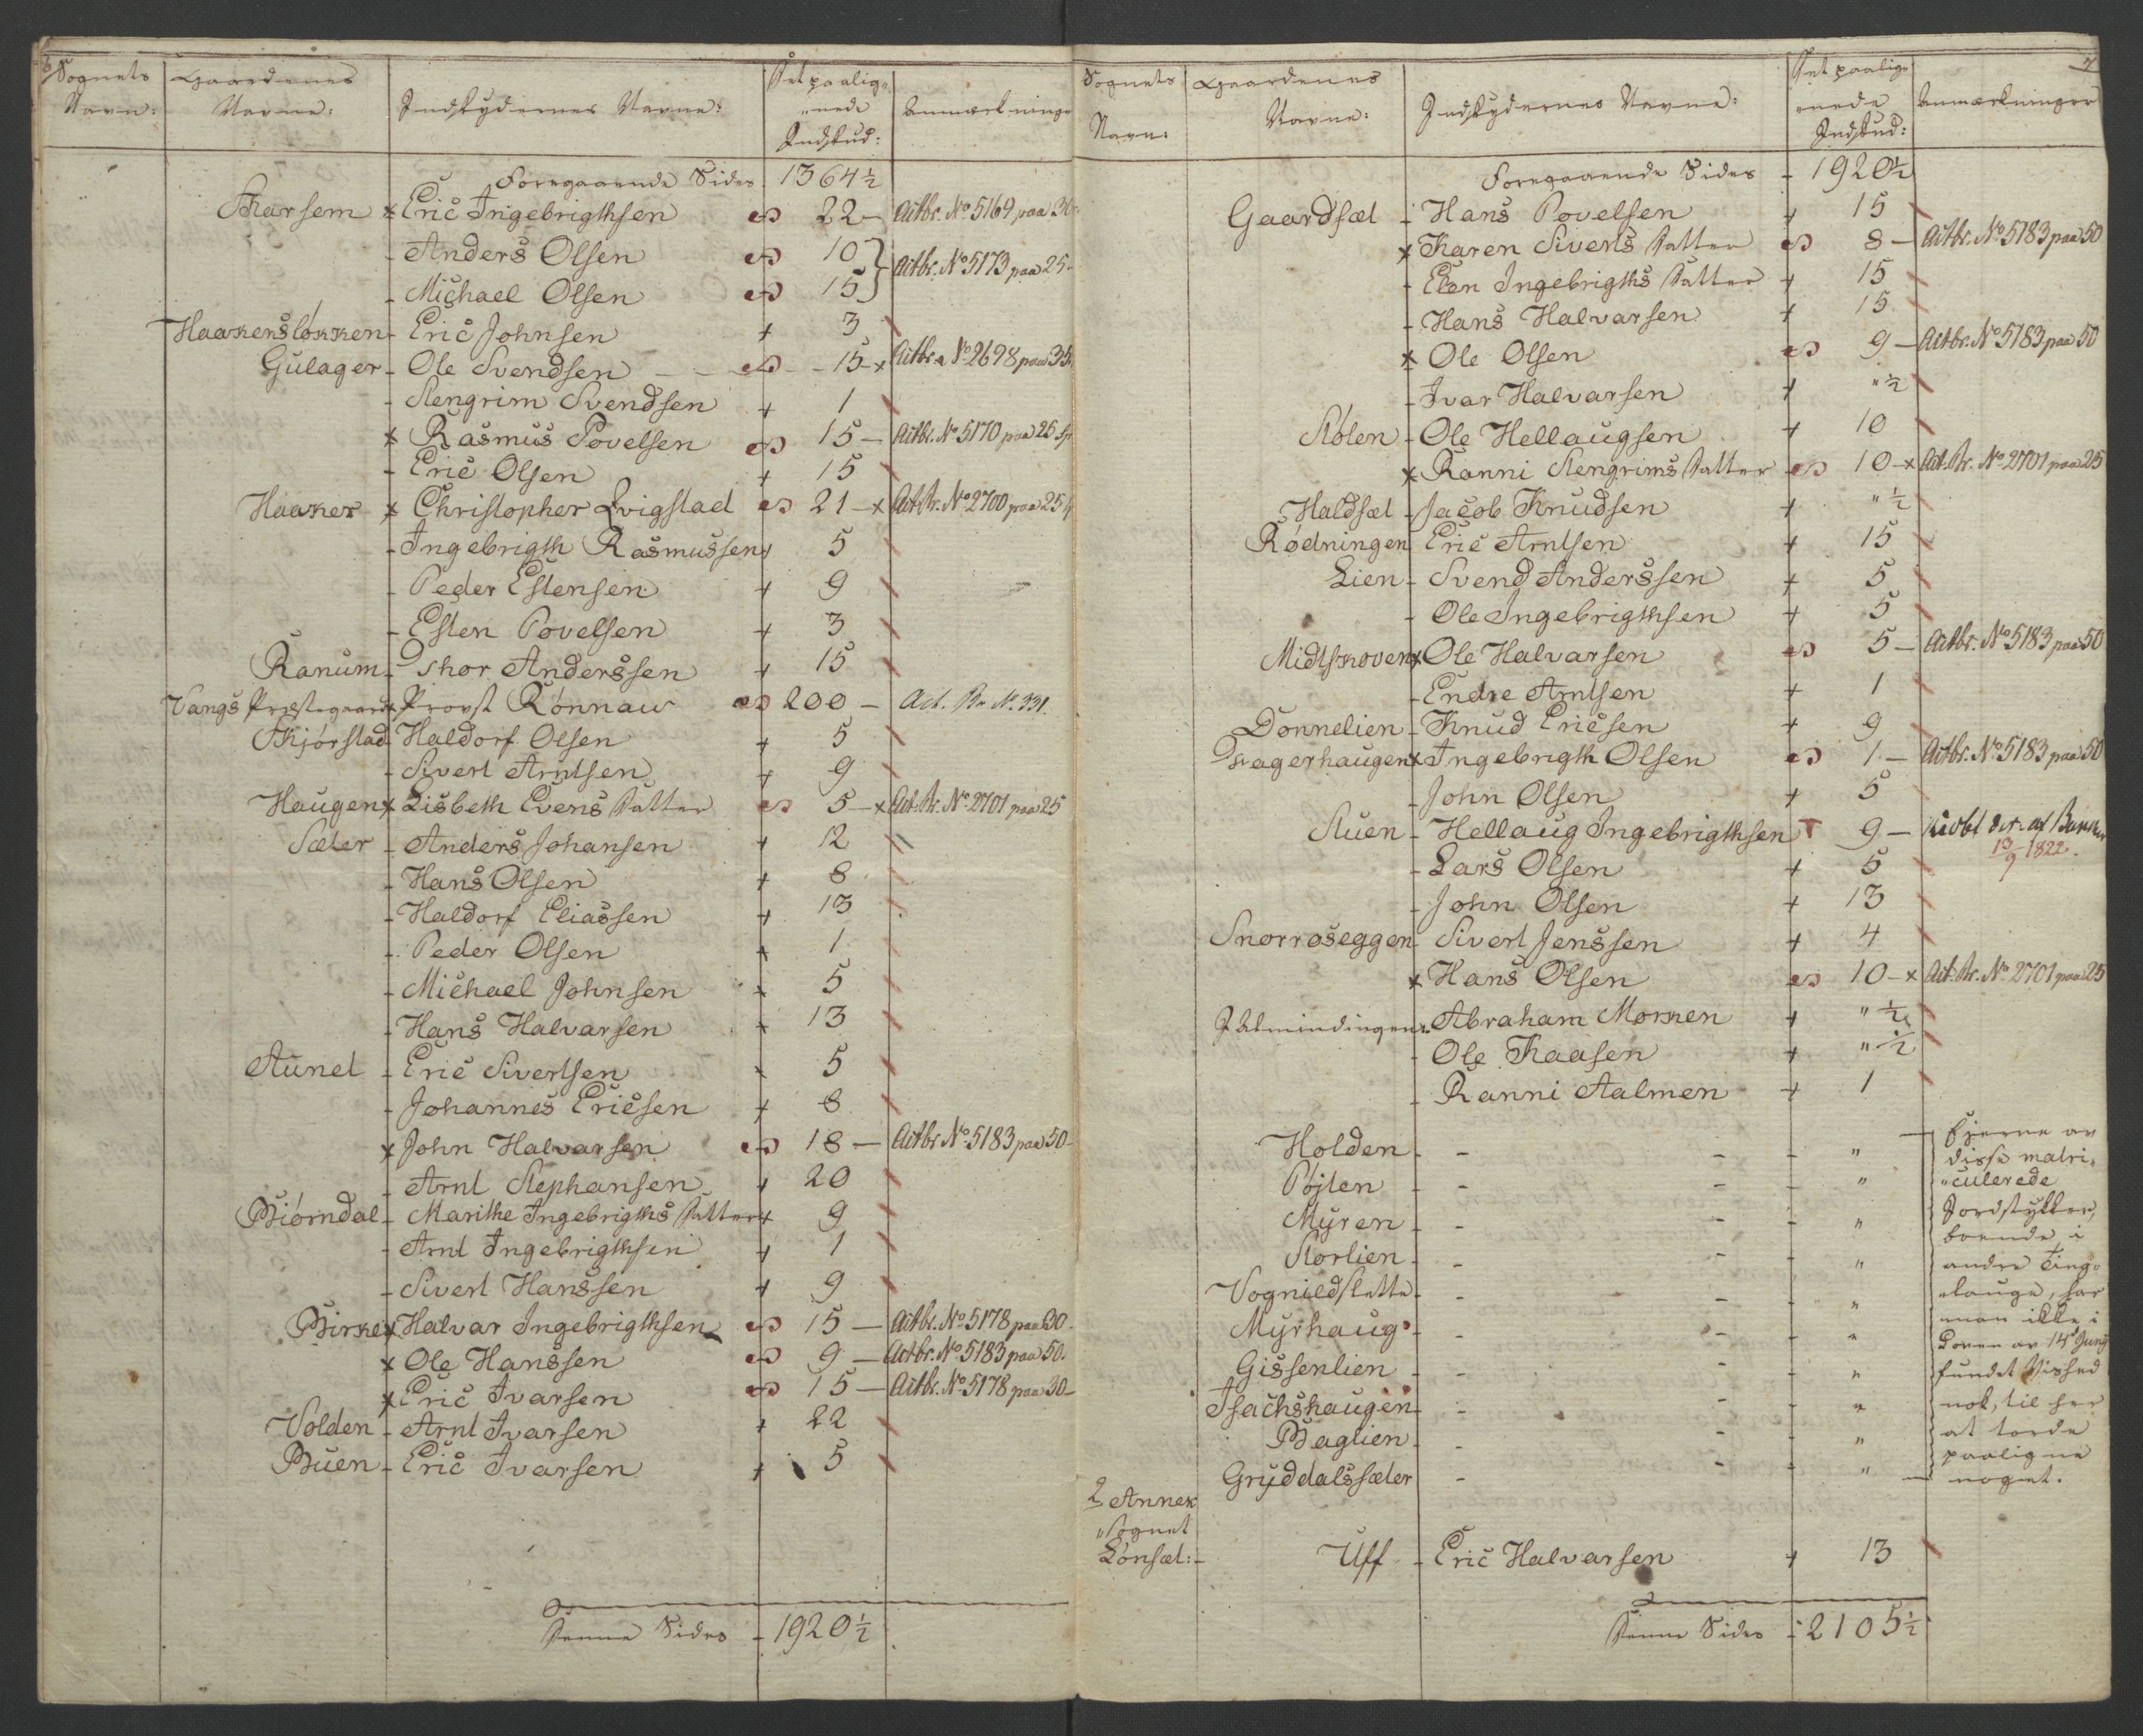 6
Sognets Navn: Gaardenes Navne: Indskydernes Navne: Det paalig„nede Indskud: Anmærkninge
Foregaaende Sides 1364½
Skarsem x Eric Ingebrigthsen 22 – Actbr. No 5169 paa 30
- Anders Olsen 10 } Actbr. No 5173 paa 25-
- Michael Olsen 15 }
Haakensløkken - Eric Johnsen + 3
Gulager - Ole Svendsen 15 x Actbr. No 2698 paa 35
- Stengrim Svendsen + 1
x Rasmus Povelsen 15 – Actbr. No 5170 paa 25 Sp
- Eric Olsen + 15
Haaker x Christopher Qvigstad 21 – x Act.Br. No 2700 paa 25
- Ingebrigth Rasmussen + 5
- Peder Estensen + 9
- Esten Povelsen + 3
Ranum - Thor Anderssen + 15
Vangs Præstegaard x Provst Rønnau 200 – Act. Br No. 331.
Skjørstad - Haldorf Olsen + 5
- Sivert Arntsen + 9
Haugen x Lisbeth Evens Datter 5 – x Act.Br. No 2701 paa 25
Sæter - Anders Johansen + 12
- Hans Olsen + 8
- Haldorf Eliassen + 13
- Peder Olsen + 1
- Michael Johnsen + 5
- Hans Halvarsen + 13
Aunet - Eric Sivertsen + 5
- Johannes Ericsen + 8
x John Halvarsen 18 – Actbr. No 5183 paa 50-
- Arnt Stephansen + 20
Biørndal - Marithe Ingebrigths Datter + 9
- Arnt Ingebrigthsen + 1
- Sivert Hanssen + 9
Birke x Halvar Ingebrigthsen 15 – Actbr. No 5178 paa 30-
x Ole Hanssen 9 – Actbr. No 5183 paa 50.
x Eric Ivarsen 15 – Actbr. No 5178 paa 30-
Volden - Arnt Ivarsen + 22
Buen - Eric Ivarsen + 5
Denne Sides - 1920½
7
Sognets Navn: Gaardenes Navne: Indskydernes Navne: Det paalig„nede Indskud: Anmærkninger
Foregaaende Sides - 1920½
Gaardsæt - Hans Povelsen + 15
x Karen Siverts Datter 8 – Actbr. No 5183 paa 50
- Elen Ingebrigths Datter + 15
- Hans Halvarsen + 15
x Ole Olsen 9 – Actbr. No 5183 paa 50
- Ivar Halvarsen + „½
Stølen - Ole Hellaugsen + 10
x Ranni Stengrims Datter 10 – x Act.Br. No 2701 paa 25
Haldsæt - Jacob Knudsen + „½
Rødningen Eric Arntsen + 15
Lien - Svend Anderssen + 5
- Ole Ingebrigthsen + 5
Midtskoven x Ole Halvarsen 5 – Actbr. No 5183 paa 50
- Endre Arntsen + 1
Donnelien - Knud Ericsen + 9
Fagerhaugen x Ingebrigth Olsen 1 – Actbr. No 5183 paa 50
- John Olsen + 5
Stuen - Hellaug Ingebrigthsen 9 –
13/9 1822.
- Lars Olsen + 5
- John Olsen + 13
Snorroseggen - Sivert Jenssen + 4
x Hans Olsen 10 – x Act.Br. No 2701 paa 25
I Almindingen - Abraham Morken + „½
- Ole Kaasen + „½
- Ranni Aalmen + 1
Holden - - - - „ Ejerne av
Pøjten - - - - „ disse matri„
Myren - - - - „ „culerede
Storlien - - - - „ Jordstykker,
Vognildslette - - - - „ boende i
Myrhaug - - - - „ andre Ting„
Gissenlien - - - - „ „lauge, har
Isachshaugen - - - - „ man ikke i
Baglien - - - - „ Loven av 14d Juny
Gryddalssæter - - - „ fundet Vished
nok, til her
at torde
paaligne
noget.
2 Annex
„Sognet
Lønsæt: - Uff - Eric Halvarsen + 13
Denne Sides - 2105½